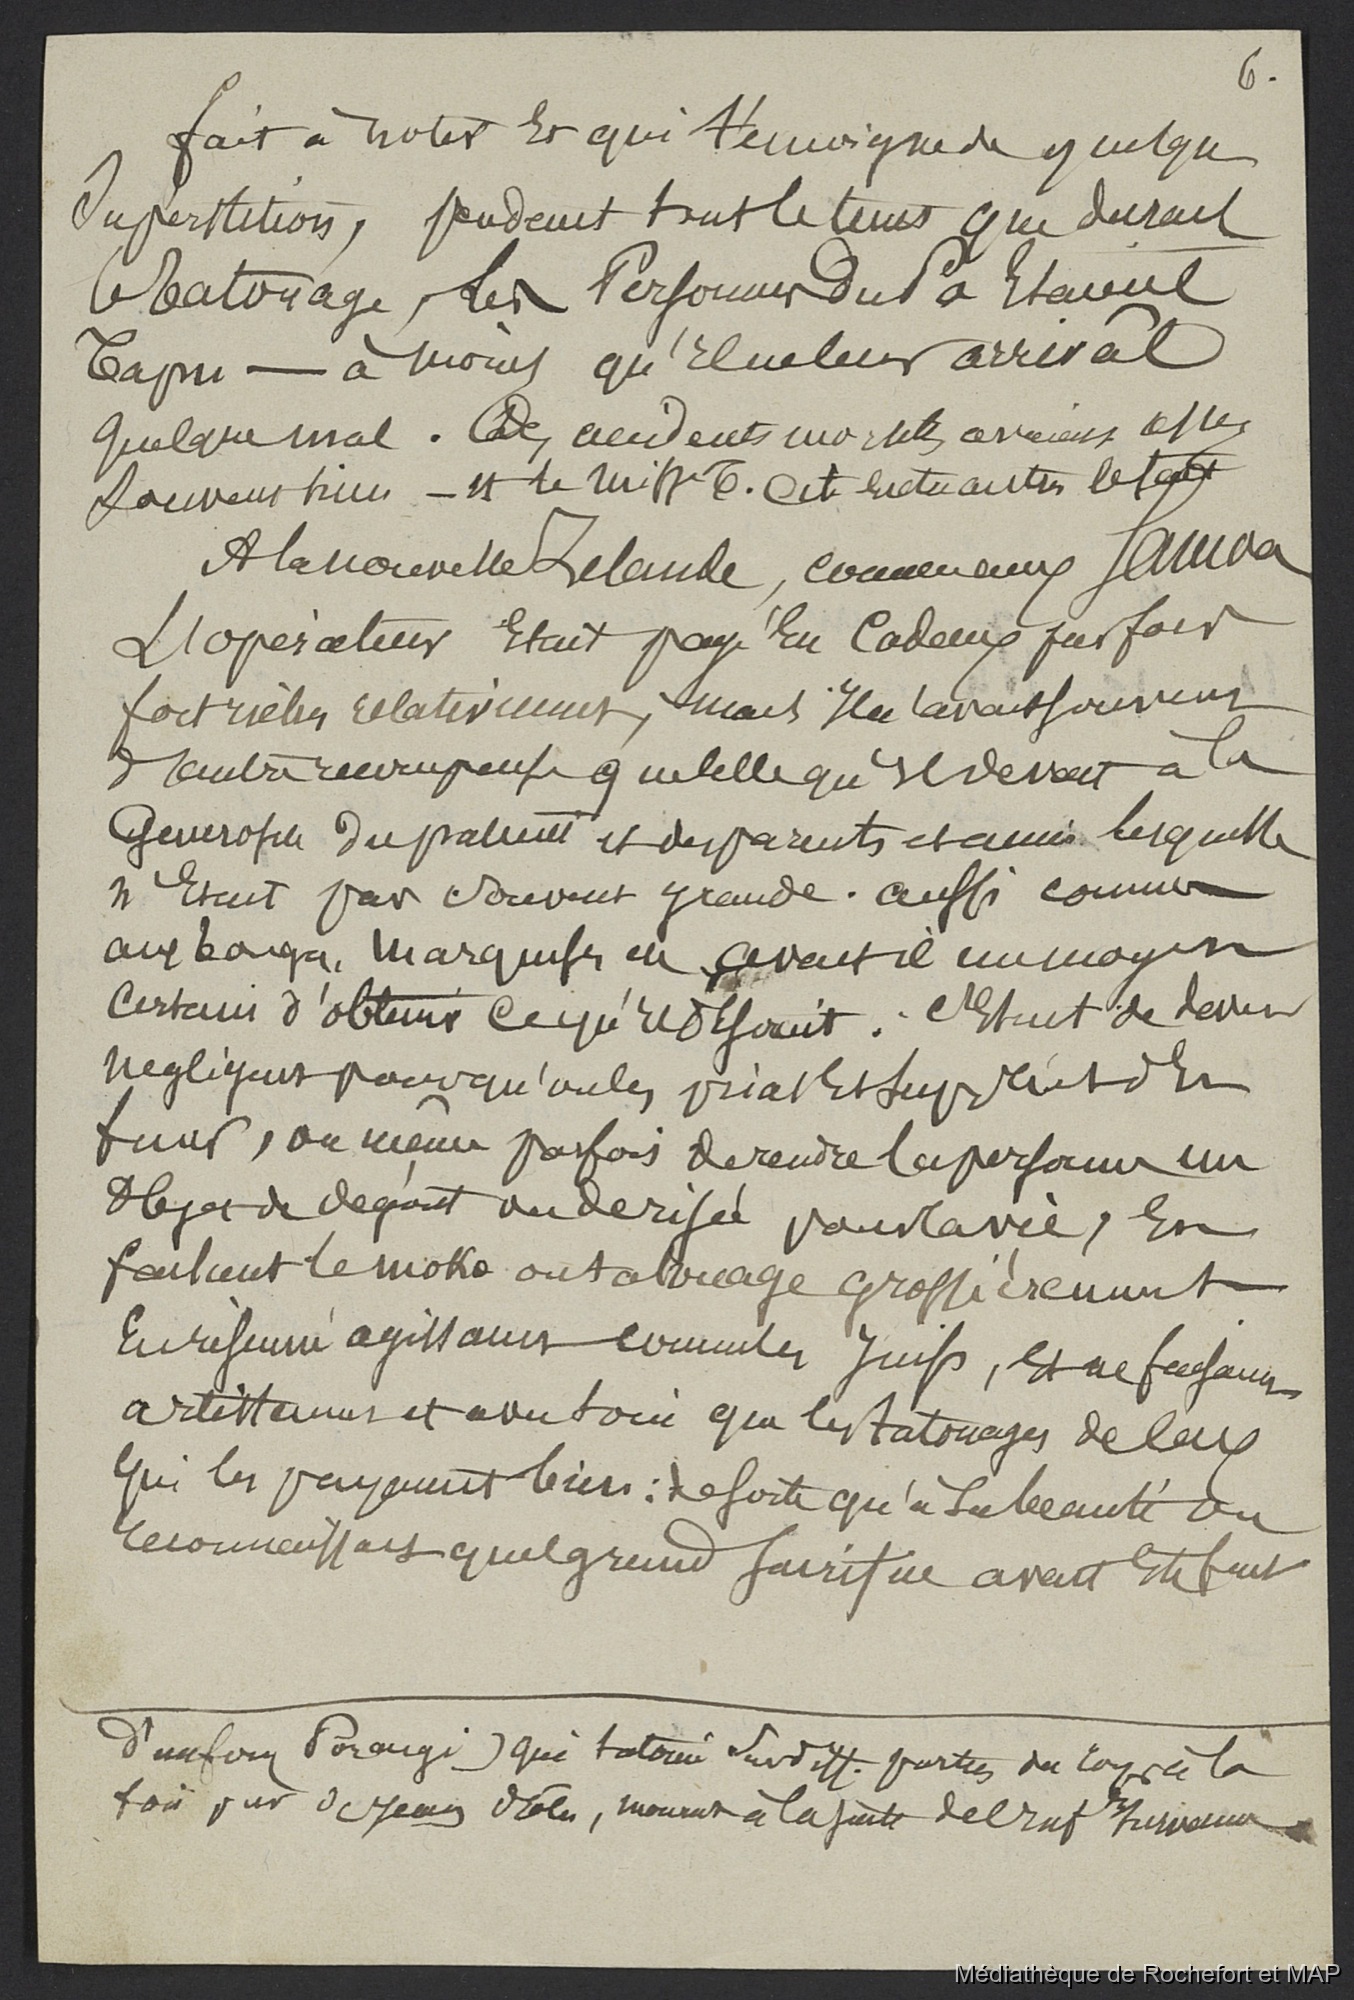 6.
fait à noter et qui témoigne de quelque
superstition, pendant tout le tems que durait
le tatouage, les Personnes du Pa etaient
Tapu — à moins qu'il ne leur arrivât
quelque mal. Des accidents mortels avaient assez
souvent lieu — et le Miss. T. cite entre autres le fait
A la nouvelle Zelande, comme aux Samoa
L'operateur etait payé en Cadeaux parfois
fort riches relativement, mais il n'avait souvent
d'autre recompense que celle qu'il devait à la
Generosité du patient et des parents et amis laquelle
n'etait pas souvent grande. aussi comme
aux Tonga, Marquises etc avait il un moyen
Certain d'obtenir ce qu'il désirait. C'etait de devenir
negligent pour qu'on les priat et suppliat d'en
finir, ou même parfois de rendre la personne un
objet de dégoût ou de risée pour la vie, en
faisant le moko ou tatouage grossièrement
En résumé agissant comme les Juifs, et ne faisant
artistement et avec soin que les tatouages de ceux
Qui les payaient bien : de sorte qu'à sa beauté on
reconnaissait quel grand sacrifice avait eté fait
D'une Porangi) qui tatoué sur diff. parties du corps à la
fois par de jeunes drôles, mourut à la suite de l'